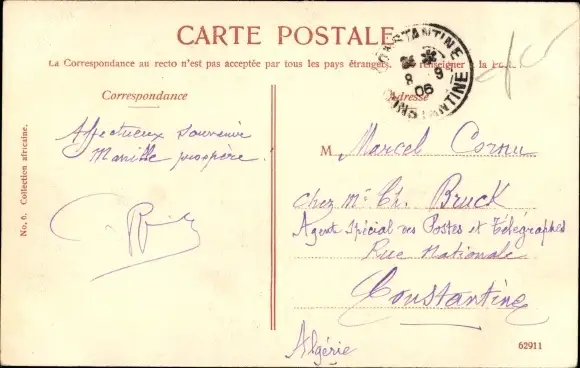 CARTE POSTALE
La Correspondance au recto n'est pas acceptée par tous les pays étrangers. renseigner à la
Correspondance
Adresse
CONSTANTINE
8 9
06
CONSTANTINE
Affectueux souvenir
Manille prospère.
M Marcel Cornu
chez Mr Ch. Bruck
Agent Spécial des Postes et Télégraphes
Rue Nationale
Constantine
Algérie
No. 6. Collection africaine.
62911